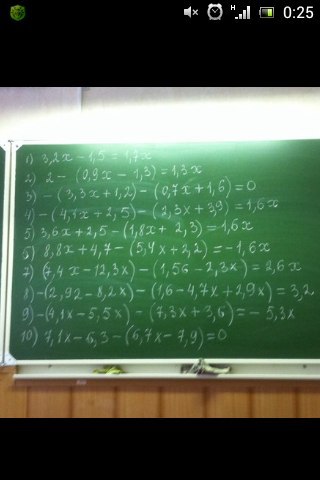 0:25
1) 3,2x - 1,5 = 1,7x
2) 2 - (0,9x - 1,3) = 1,3x
3) - (3,3x + 1,2) - (0,7x + 1,6) = 0
4) - (4,4x + 2,5) - (2,3x + 3,9) = 1,6x
5) 3,6x + 2,5 - (1,8x + 2,3) = 1,6x
6) 8,8x + 4,7 - (5,4x + 2,2) = -1,6x
7) (7,4x - 12,3x) - (1,56 - 2,3x) = 2,6x
8) - (2,92 - 8,2x) - (1,6 - 4,7x + 2,9x) = 3,2
9) - (4,1x - 5,5x) - (7,3x + 3,6) = - 5,3x
10) 7,1x - 6,3 - (6,7x - 7,9) = 0